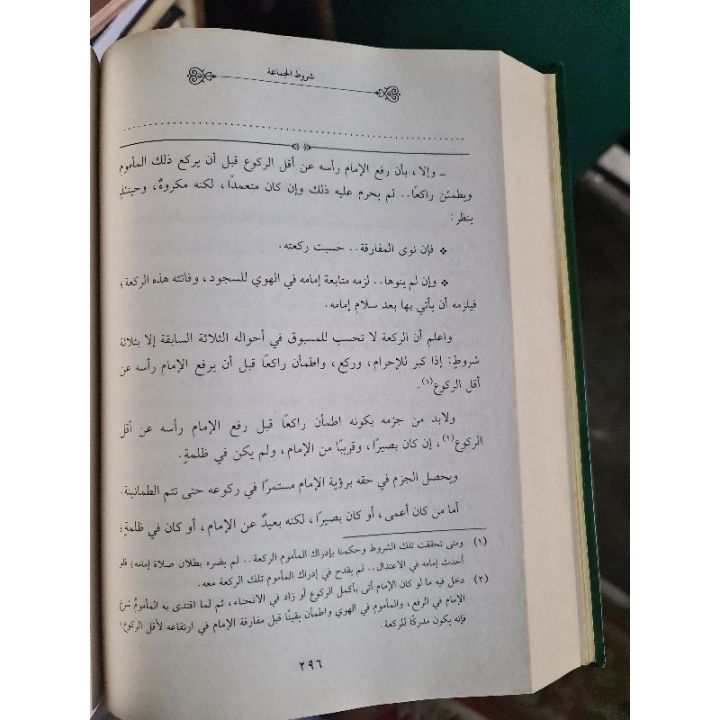 شروط الجماعة
- وإلا، بأن رفع الإمام رأسه عن أقل الركوع قبل أن يركع ذلك المأموم
ويطمئن راكعًا.. لم يحرم عليه ذلك وإن كان متعمدًا، لكنه مكروهٌ، وحينئذٍ
ينظر:
❖ فإن نوى المفارقة.. حسبت ركعته.
❖ وإن لم ينوها.. لزمه متابعة إمامه في الهوي للسجود، وفاتته هذه الركعة؛
فيلزمه أن يأتي بها بعد سلام إمامه.
واعلم أن الركعة لا تحسب للمسبوق في أحواله الثلاثة السابقة إلا بثلاثة
شروطٍ: إذا كبر للإحرام، وركع، واطمأن راكعًا قبل أن يرفع الإمام رأسه عن
أقل الركوع(١).
ولابد من جزمه بكونه اطمأن راكعًا قبل رفع الإمام رأسه عن أقل
الركوع(٢)، إن كان بصيرًا، وقريبًا من الإمام، ولم يكن في ظلمةٍ.
ويحصل الجزم في حقه برؤية الإمام مستمرًا في ركوعه حتى تتم الطمانينة.
أما من كان أعمى، أو كان بصيرًا، لكنه بعيدٌ عن الإمام، أو كان في ظلمةٍ؛
(١) ومتى تحققت تلك الشروط وحكمنا بإدراك المأموم الركعة.. لم يضره بطلان صلاة إمامه؛ فلو
أحدث إمامه في الاعتدال.. لم يقدح في إدراك المأموم تلك الركعة معه.
(٢) دخل فيه ما لو كان الإمام أتى بأكمل الركوع أو زاد في الانحناء، ثم لما اقتدى به المأموم شرع
الإمام في الرفع، والمأموم في الهوي واطمأن يقينًا قبل مفارقة الإمام في ارتفاعه لأقل الركوع؛
فإنه يكون مدركًا للركعة.
٢٩٦